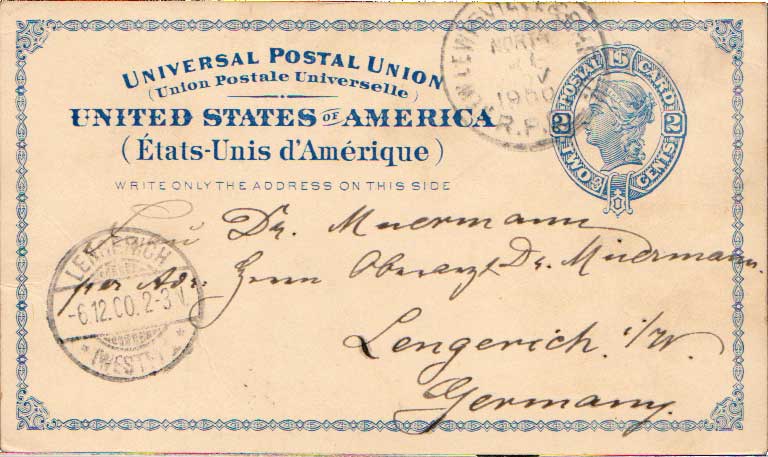 UNIVERSAL POSTAL UNION
(Union Postale Universelle)
UNITED STATES OF AMERICA
(États-Unis d'Amérique)
WRITE ONLY THE ADDRESS ON THIS SIDE
NORTH
NOV
1900
R.P.O.
POSTAL CARD
2 2
TWO CENTS
Dr. Muermann
per Adr: Herrn Oberarzt Dr. Muermann.
Lengerich. i/W.
Germany.
LENGERICH
-6.12.00. 2-3 N.
* (WESTF) *